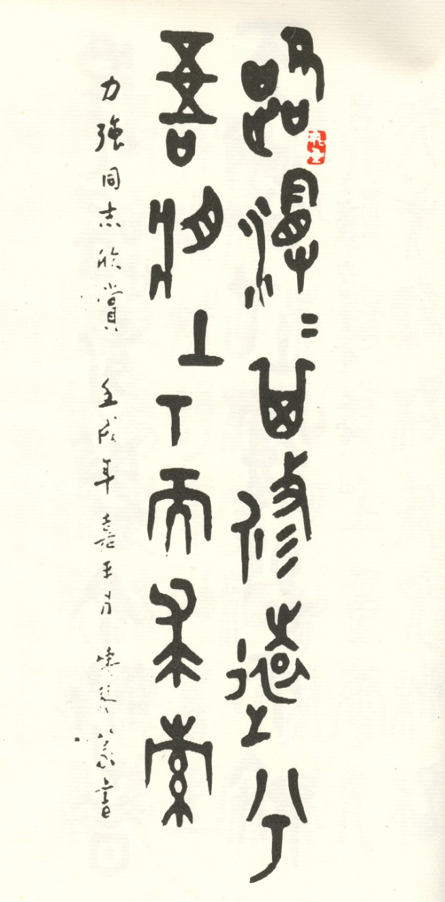 路漫=其修遠兮
吾將上下而求索
力強同志欣賞 壬戌年嘉平月
書